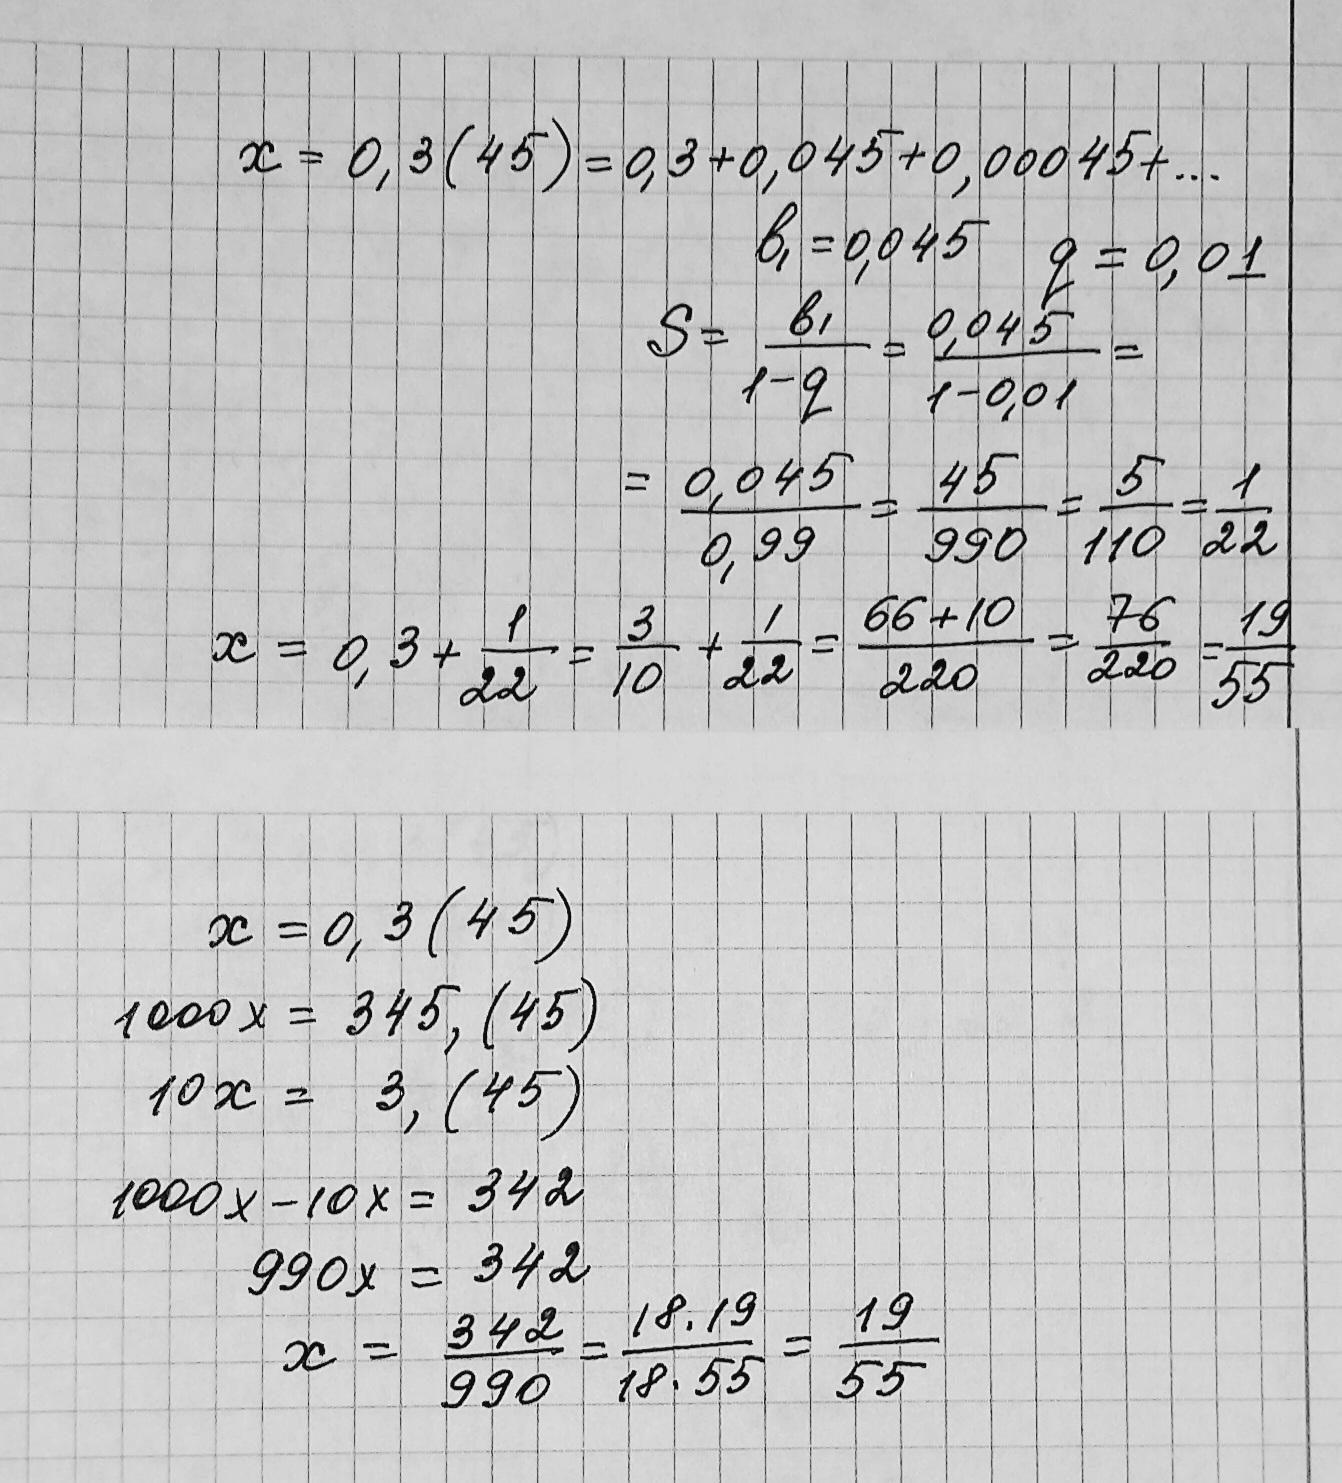 x = 0,3(45) = 0,3+0,045+0,00045+...
b₁ = 0,045 q = 0,01
S = b₁/(1-q) = 0,045/(1-0,01) =
= 0,045/0,99 = 45/990 = 5/110 = 1/22
x = 0,3 + 1/22 = 3/10 + 1/22 = (66+10)/220 = 76/220 = 19/55
x = 0,3(45)
1000x = 345,(45)
10x = 3,(45)
1000x - 10x = 342
990x = 342
x = 342/990 = 18·19/18·55 = 19/55